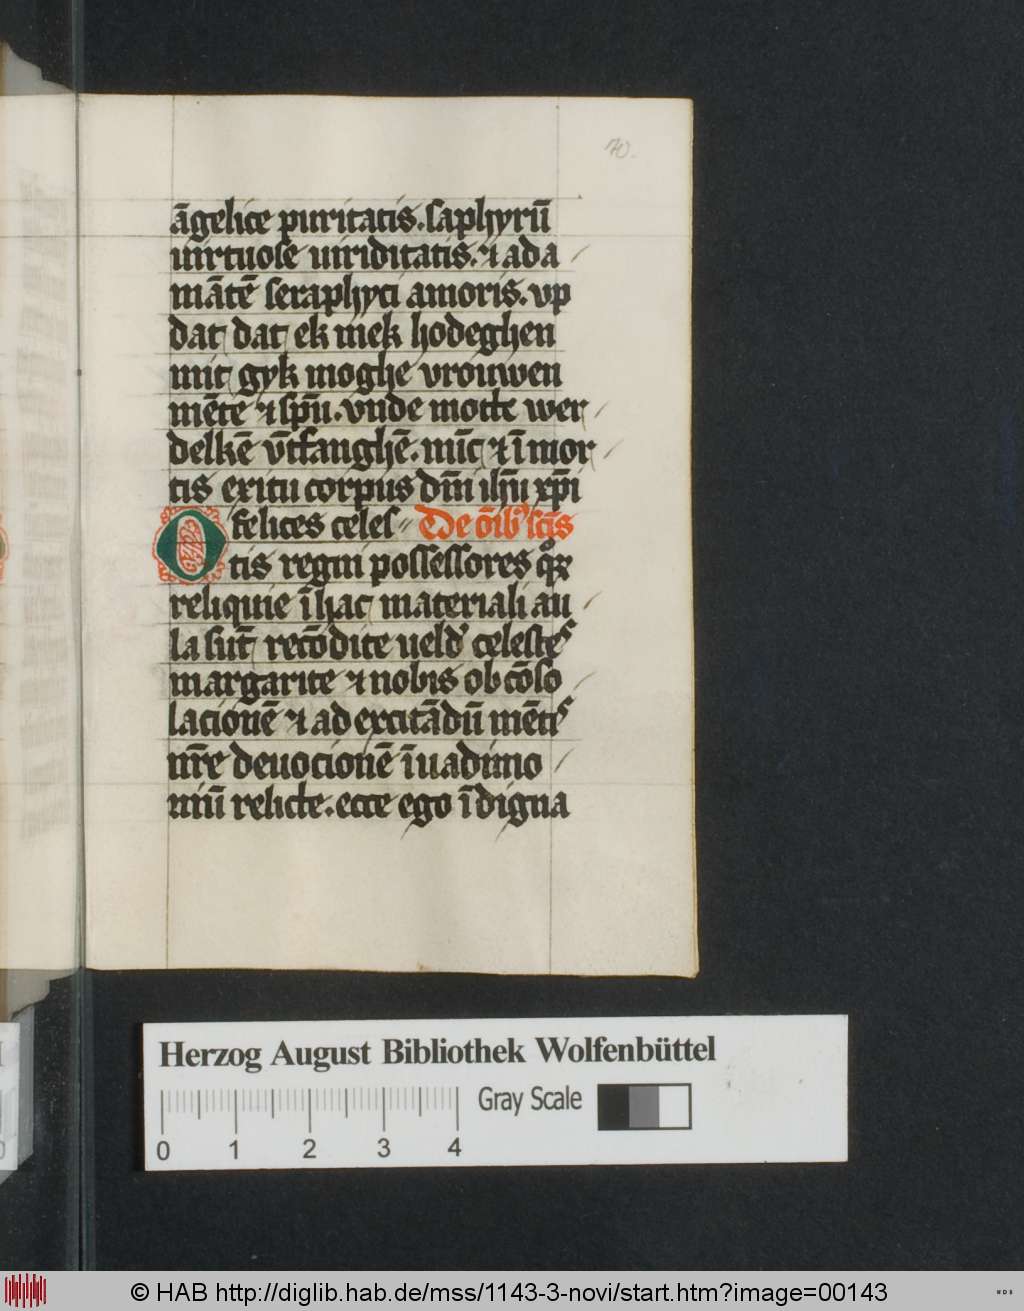 70.
āgelice puritatis. saphyrū
uirtuose uiriditatis. ⁊ ada
mātē seraphyci amoris. vp
dat dat ek mek hodeghen
mit gyk moghe vrouwen
mēte ⁊ spū. vnde mote wer
delkē vntfanghē. mīt ⁊ ī mor
tis exitu corpus dm̄ ihū xp̄i
O felices celes De oīb' sctīs
tis regni possessores qͦꝝ
reliquie ī hac materiali au
la sūt recōdite ueld' celestes
margarite ⁊ nobis ob cōso
lacionē ⁊ ad excitādū mētis
nr̄e deuocionē ī uadimo
niū relicte. ecce ego īdigna
Herzog August Bibliothek Wolfenbüttel
Gray Scale
0 1 2 3 4
© HAB http://diglib.hab.de/mss/1143-3-novi/start.htm?image=00143